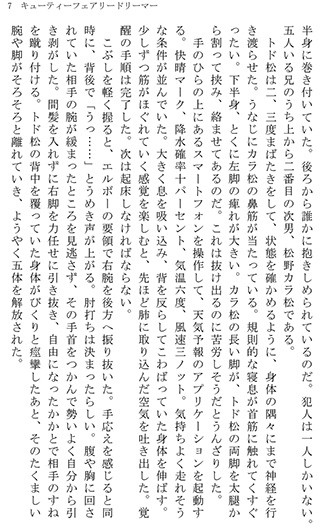 7　キューティーフェアリードリーマー
半身に巻き付いていた。後ろから誰かに抱きしめられているのだ。犯人は一人しかいない。
五人いる兄のうち上から二番目の次男、松野カラ松である。
　トド松は二、三度まばたきをして、状態を確かめるように、身体の隅々にまで神経を行
き渡らせた。うなじにカラ松の鼻筋が当たっている。規則的な寝息が首筋に触れてくすぐ
ったい。下半身、とくに左脚の痺れが大きい。カラ松の長い脚が、トド松の両脚を太腿か
ら割って挟み、絡ませてあるのだ。これは抜け出るのに苦労しそうだとうんざりした。
　手のひらの上にあるスマートフォンを操作して、天気予報のアプリケーションを起動す
る。快晴マーク、降水確率十パーセント、気温六度、風速三ノット。気持ちよく走れそう
な条件が並んでいた。大きく息を吸い込み、背を反らしてこわばっていた身体を伸ばす。
少しずつ筋がほぐれていく感覚を楽しむと、先ほど肺に取り込んだ空気を吐き出した。覚
醒の手順は完了した。次は起床しなければならない。
　こぶしを軽く握ると、エルボーの要領で右腕を後方へ振り抜いた。手応えを感じると同
時に、背後で「うっ……」とうめき声が上がる。肘打ちは決まったらしい。腹や胸に回さ
れていた相手の腕が緩まったところを見逃さず、その手首をつかんで勢いよく自分から引
き剥がした。間髪を入れずに右脚を力任せに引き抜き、自由になったかかとで相手のすね
を蹴り付ける。トド松の背中を覆っていた身体がびくりと痙攣したあと、そのたくましい
腕や脚がそろそろと離れていき、ようやく五体を解放された。